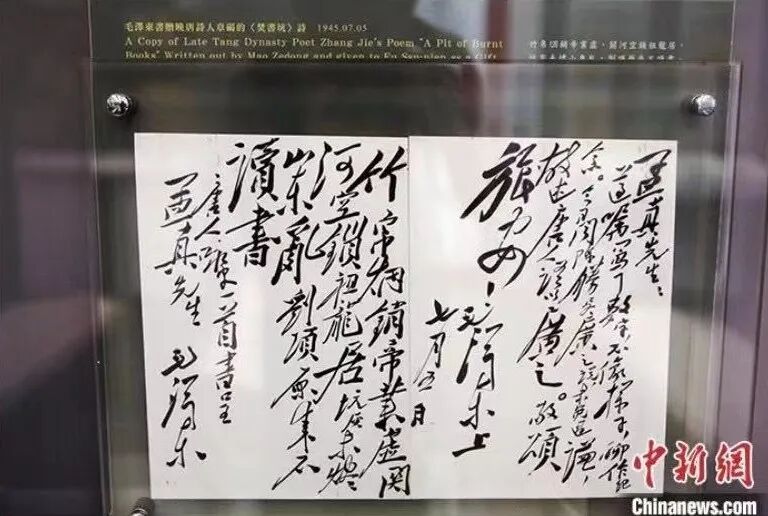 毛澤東書贈晚唐詩人章碣的〈焚書坑〉詩 1945.07.05
A Copy of Late Tang Dynasty Poet Zhang Jie's Poem "A Pit of Burnt
Books" Written out by Mao Zedong and given to Fu Ssu-nien as a Gift
竹帛煙銷帝業虛，關河空鎖祖龍居，
孟真先生：
遵囑寫了數字，不像樣子，聊作紀
念。今日聞陳勝吳廣之說，未免過謙，
故述唐人詩以廣之。敬頌
旅安
毛澤東上
七月五日
竹帛煙銷帝業虛關
河空鎖祖龍居坑灰未燼
山東亂劉項原來不
讀書
唐人詠史一首書呈
孟真先生 毛澤東
中新网
Chinanews.com